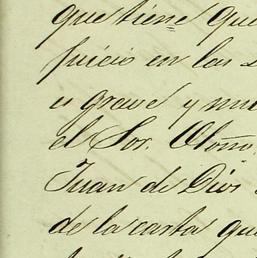 que tiene que
juicio en las
es grave y mu
el Sor. Otoño
Juan de Dios
de la carta que